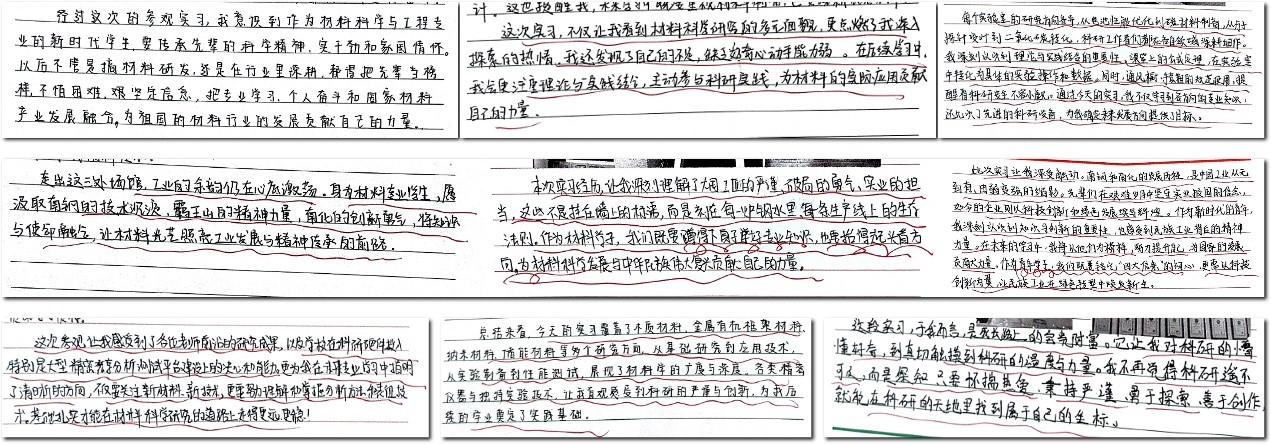 经过这次的参观实习,我意识到作为材料科学与工程专
业的新时代学生,要传承先辈的科学精神,实干和家国情怀。
以后不管是搞材料研发,还是在行业里深耕,都要把先辈当榜
样,不怕困难,坚定信念,把专业学习、个人奋斗和国家材料
产业发展融合。为祖国的材料行业的发展贡献自己的力量。
这次实习,不仅让我看到材料科学研究的多元面貌,更点燃了我深入
探索的热情。我还发现了自己的不足,缺乏好奇心动手能力弱。在后续学习中,
我会更注重理论与实践结合,主动参与科研实践,为材料的实际应用贡献
自己的力量。
每个实验室的研究方向各异,从电池性能优化到碳材料制备,从
到二氧化碳转化,科研工作者们都在各自领域深耕细作。
我深刻认识到理论与实践结合的重要性,课堂上的公式原理,在实验室
中转化为具体的实验操作和数据。同时,通风橱的规范使用,提
醒着科研安全不容小觑。通过今天的实习,我不仅学到各方向的专业知识,
还见识了先进的科研设备,为我确定未来发展方向提供了目标。
走出这三处场馆,工业的余韵仍在心底激荡。身为材料专业学生,愿
汲取南钢的技术沉淀,霸王山的精神力量,南化的创新勇气,将知识
与使命融合,让材料光芒照亮工业发展与精神传承的前路。
本次实习经历,让我深刻理解了大国工匠的严谨、破局的勇气,实业的担
当,这些不是挂在墙上的标语,而是刻在每一炉钢水里每条生产线上的生存
法则。作为材料学子,我们既要蹲得下身子摩挲专业知识,也要抬得起头看方
向,为材料科学发展与中华民族伟大复兴贡献自己的力量。
此次实习让我深受触动。南钢和南化的发展历程,是中国工业从无
到有、由弱变强的缩影。先辈们在艰难岁月中坚守实业报国的信念,
如今的企业则以科技创新和绿色发展续写辉煌。作为新时代的青年,
我深刻认识到知识与创新的重要性,也体会到民族工业背后的精神
力量。在未来的学习中,我将以他们为榜样,努力提升自己,为国家的发展
贡献力量。作为青年学生,我们既要铭记"四大信条"的初心,更要以科技
创新为翼,让民族工业在绿色转型中焕发新生。
这次参观,让我感受到了各位老师前沿的研究成果,以及学校在科研硬件投入
特别是大型精密仪器分析测试平台建设上的决心和能力,更为我在材料专业的学习中指明
了清晰的方向,不仅要关注新材料、新技术,更要努力理解和掌握分析方法和表征技
术。基础扎实才能在材料科学研究的道路上走得更远更稳!
总结来看,今天的实习覆盖了木质材料、金属有机框架材料、
纳米材料、储能材料等多个研究方向,从基础研究到应用技术,
从实验制备到性能测试,展现了材料学的广度与深度。各类精密
仪器与独特实验技术,让我直观感受到科研的严谨与创新,为我后
续的学业奠定了实践基础。
这段实习,于我而言,是成长路上的宝贵财富。它让我对科研的
懂好奇,到真切触摸到科研的温度与力量。我不再觉得科研遥不
可及,而是深知只要怀揣热爱、秉持严谨、勇于探索、善于创作,
就能在科研的天地里找到属于自己的坐标。